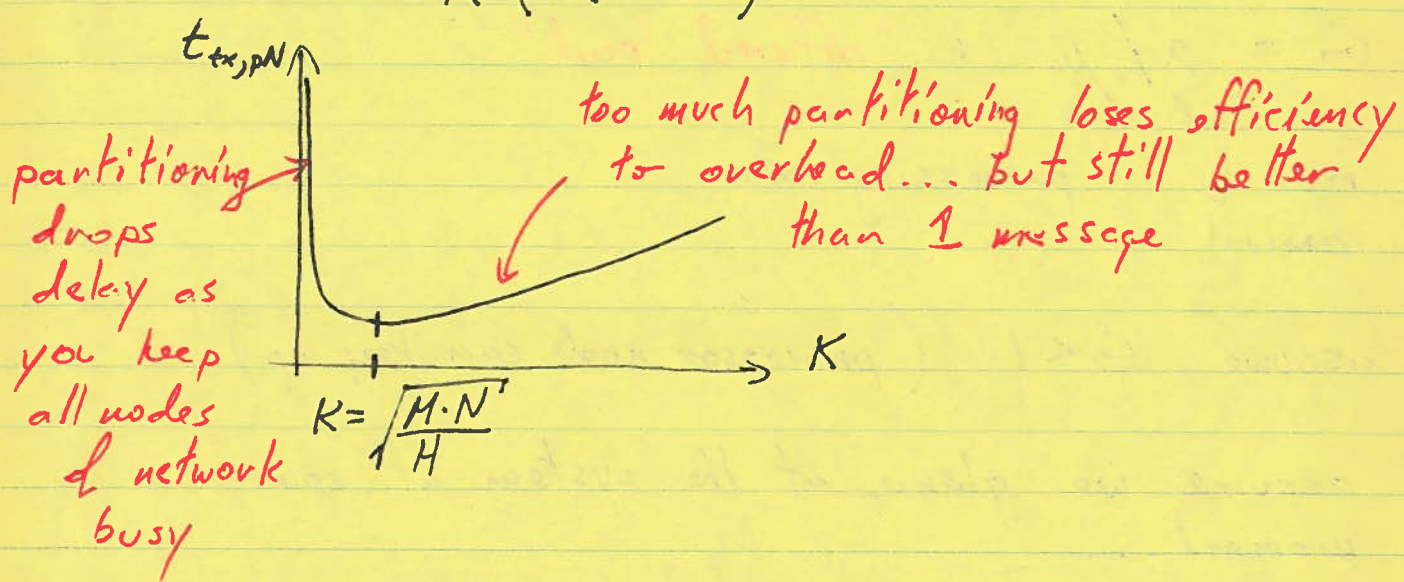 t_tx,pN
too much partitioning loses efficiency
to overhead... but still better
than 1 message
partitioning
drops
delay as
you keep
all nodes
of network
busy
K
K = √(M·N/H)